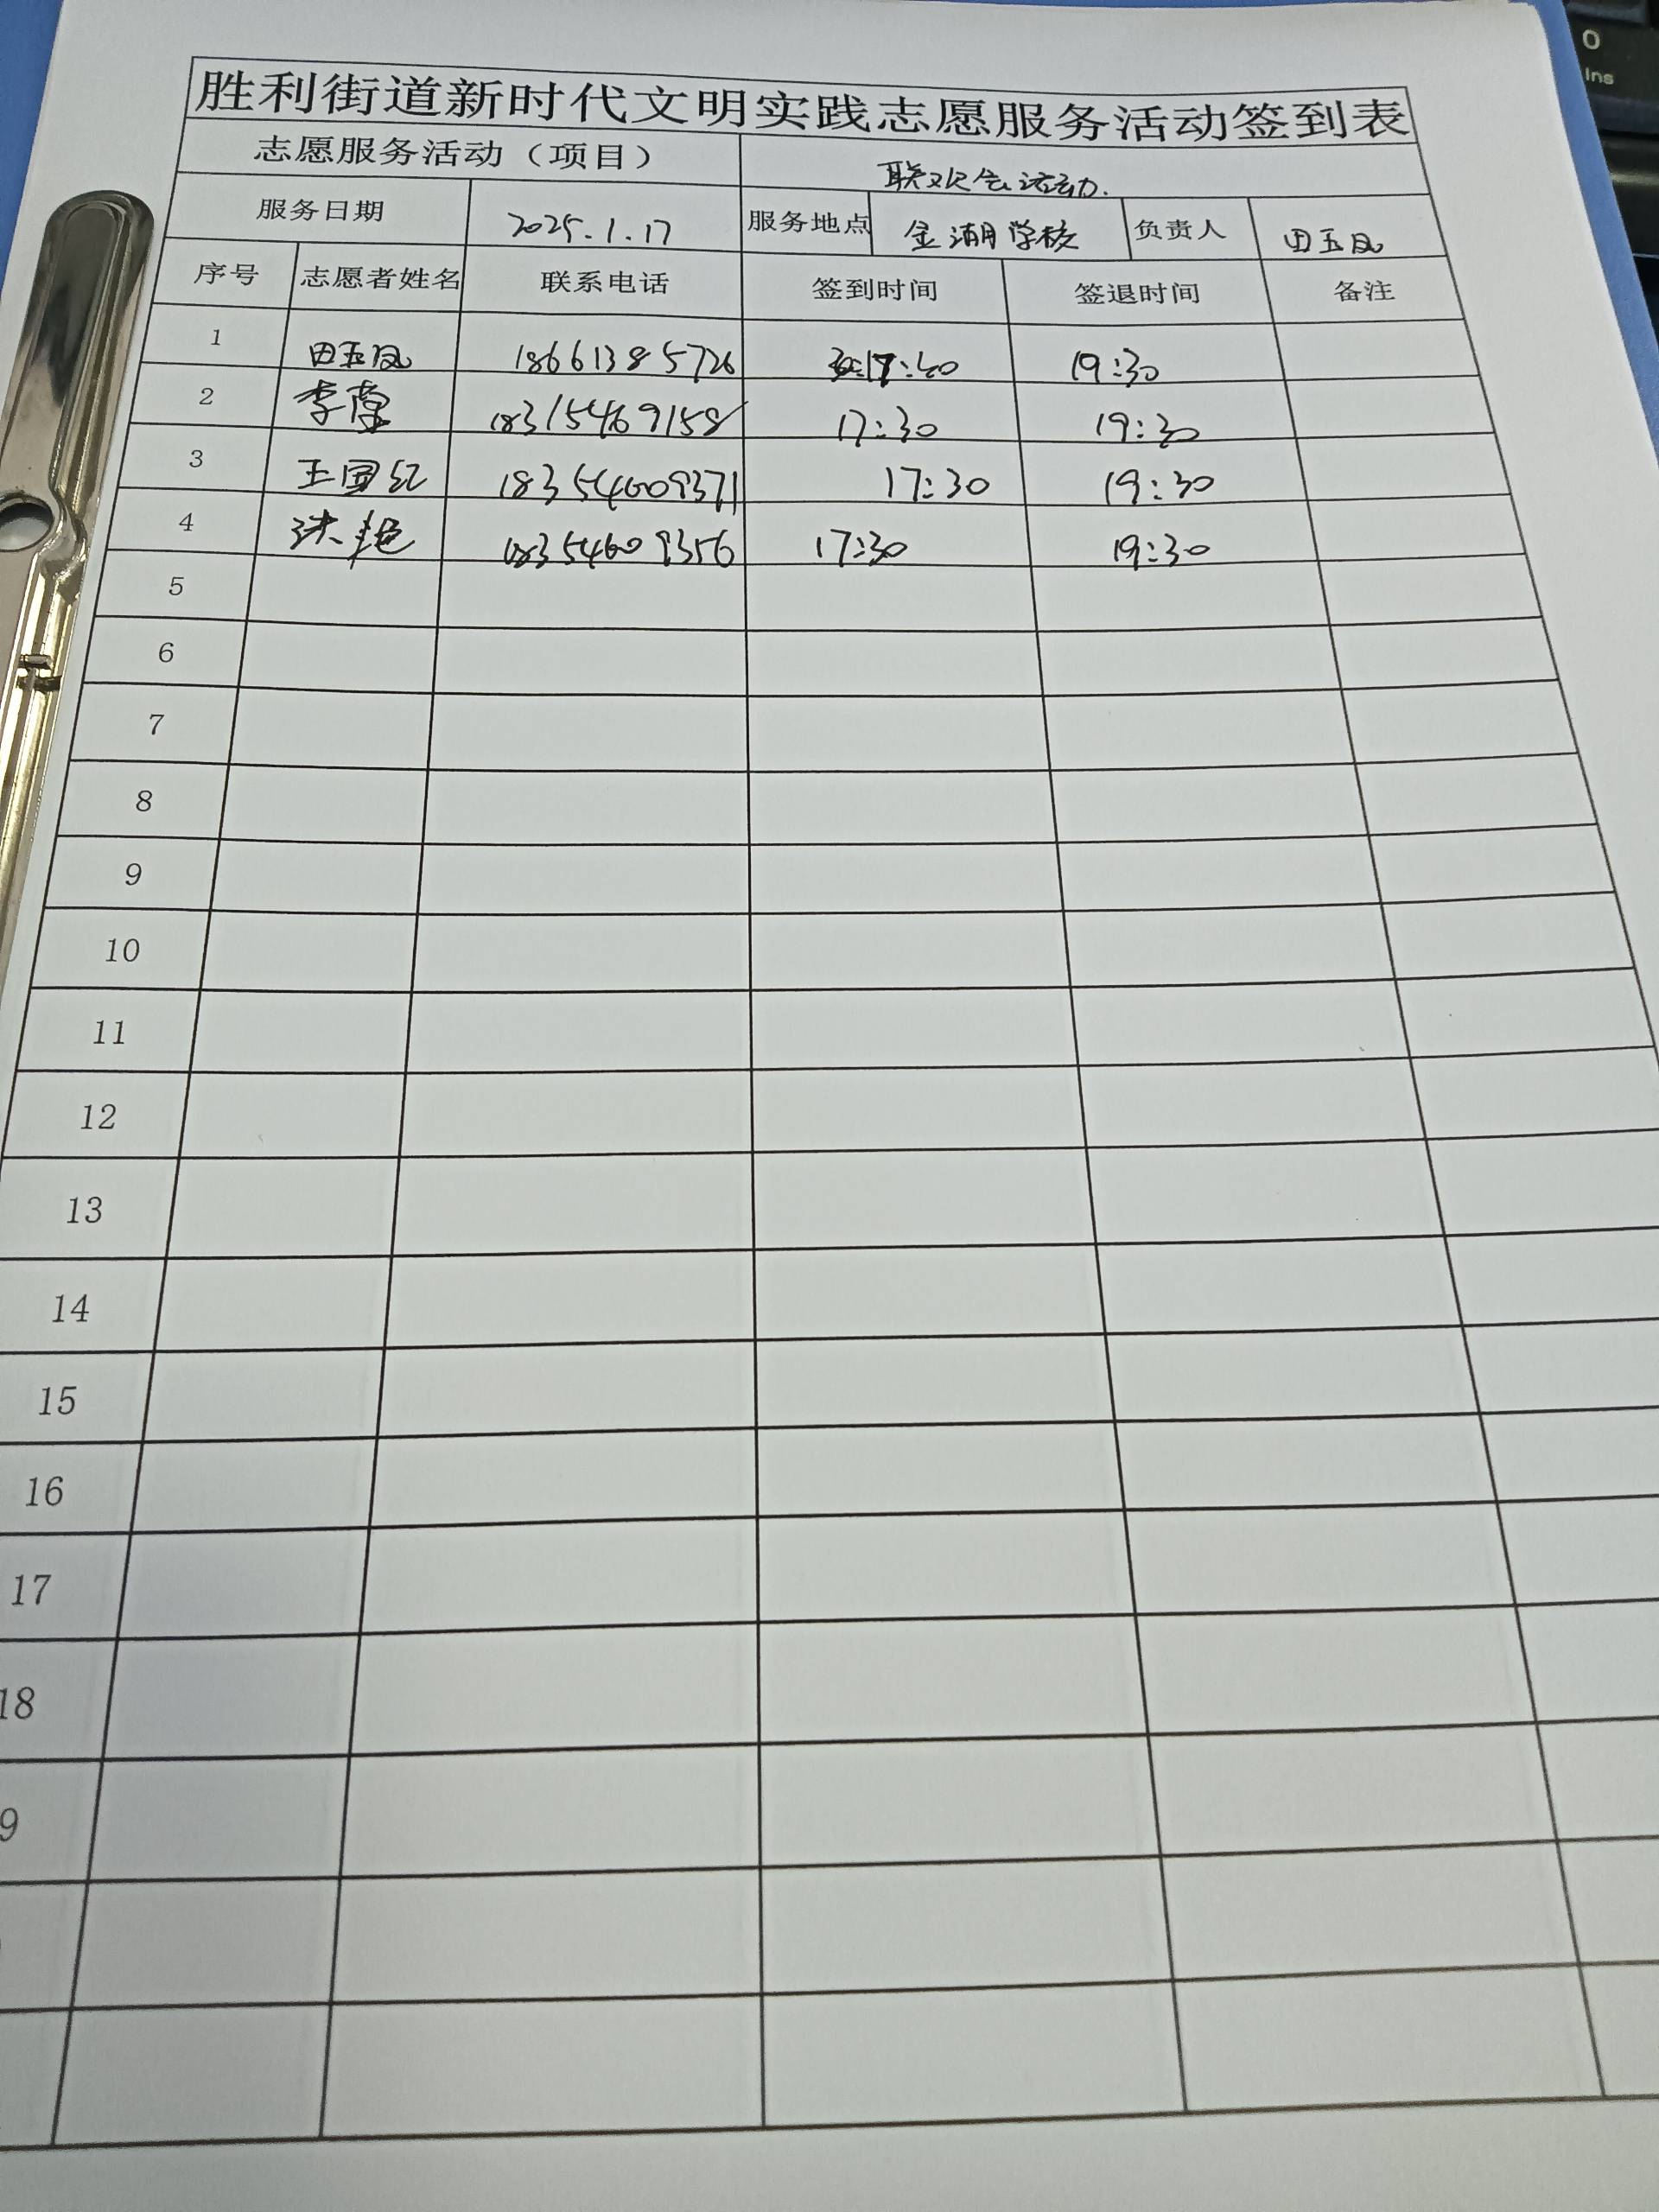 胜利街道新时代文明实践志愿服务活动签到表
志愿服务活动（项目） 联欢会活动.
服务日期 2025.1.17 服务地点 金湖学校 负责人 田玉凤
序号 志愿者姓名 联系电话 签到时间 签退时间 备注
1 田玉凤 18661385726 17:30 19:30
2 李 18315469158 17:30 19:30
3 王国红 18354609371 17:30 19:30
4 艳 18354609356 17:30 19:30
5
6
7
8
9
10
11
12
13
14
15
16
17
18
9
0
Ins